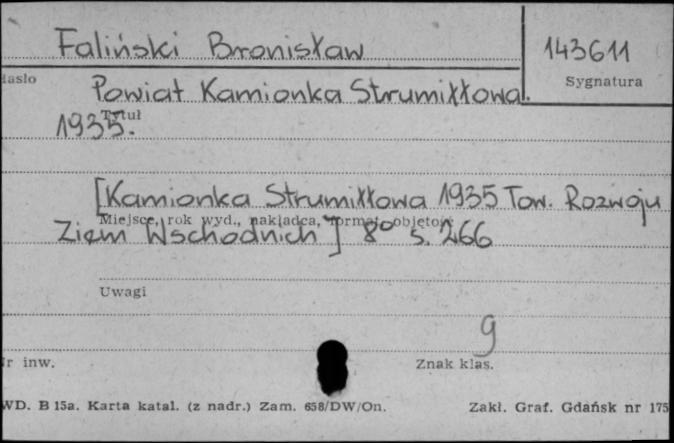 Faliński Bronisław
143611
Hasło
Sygnatura
Powiat Kamionka Strumiłłowa.
Tytuł
1935.
[Kamionka Strumiłłowa 1935 Tow. Rozwoju
Miejsce, rok wyd., nakładca, format, objętość
Ziem Wschodnich] 8° s. 266
Uwagi
9
Nr inw.
Znak klas.
WD. B 15a. Karta katal. (z nadr.) Zam. 658/DW/On.
Zakł. Graf. Gdańsk nr 175